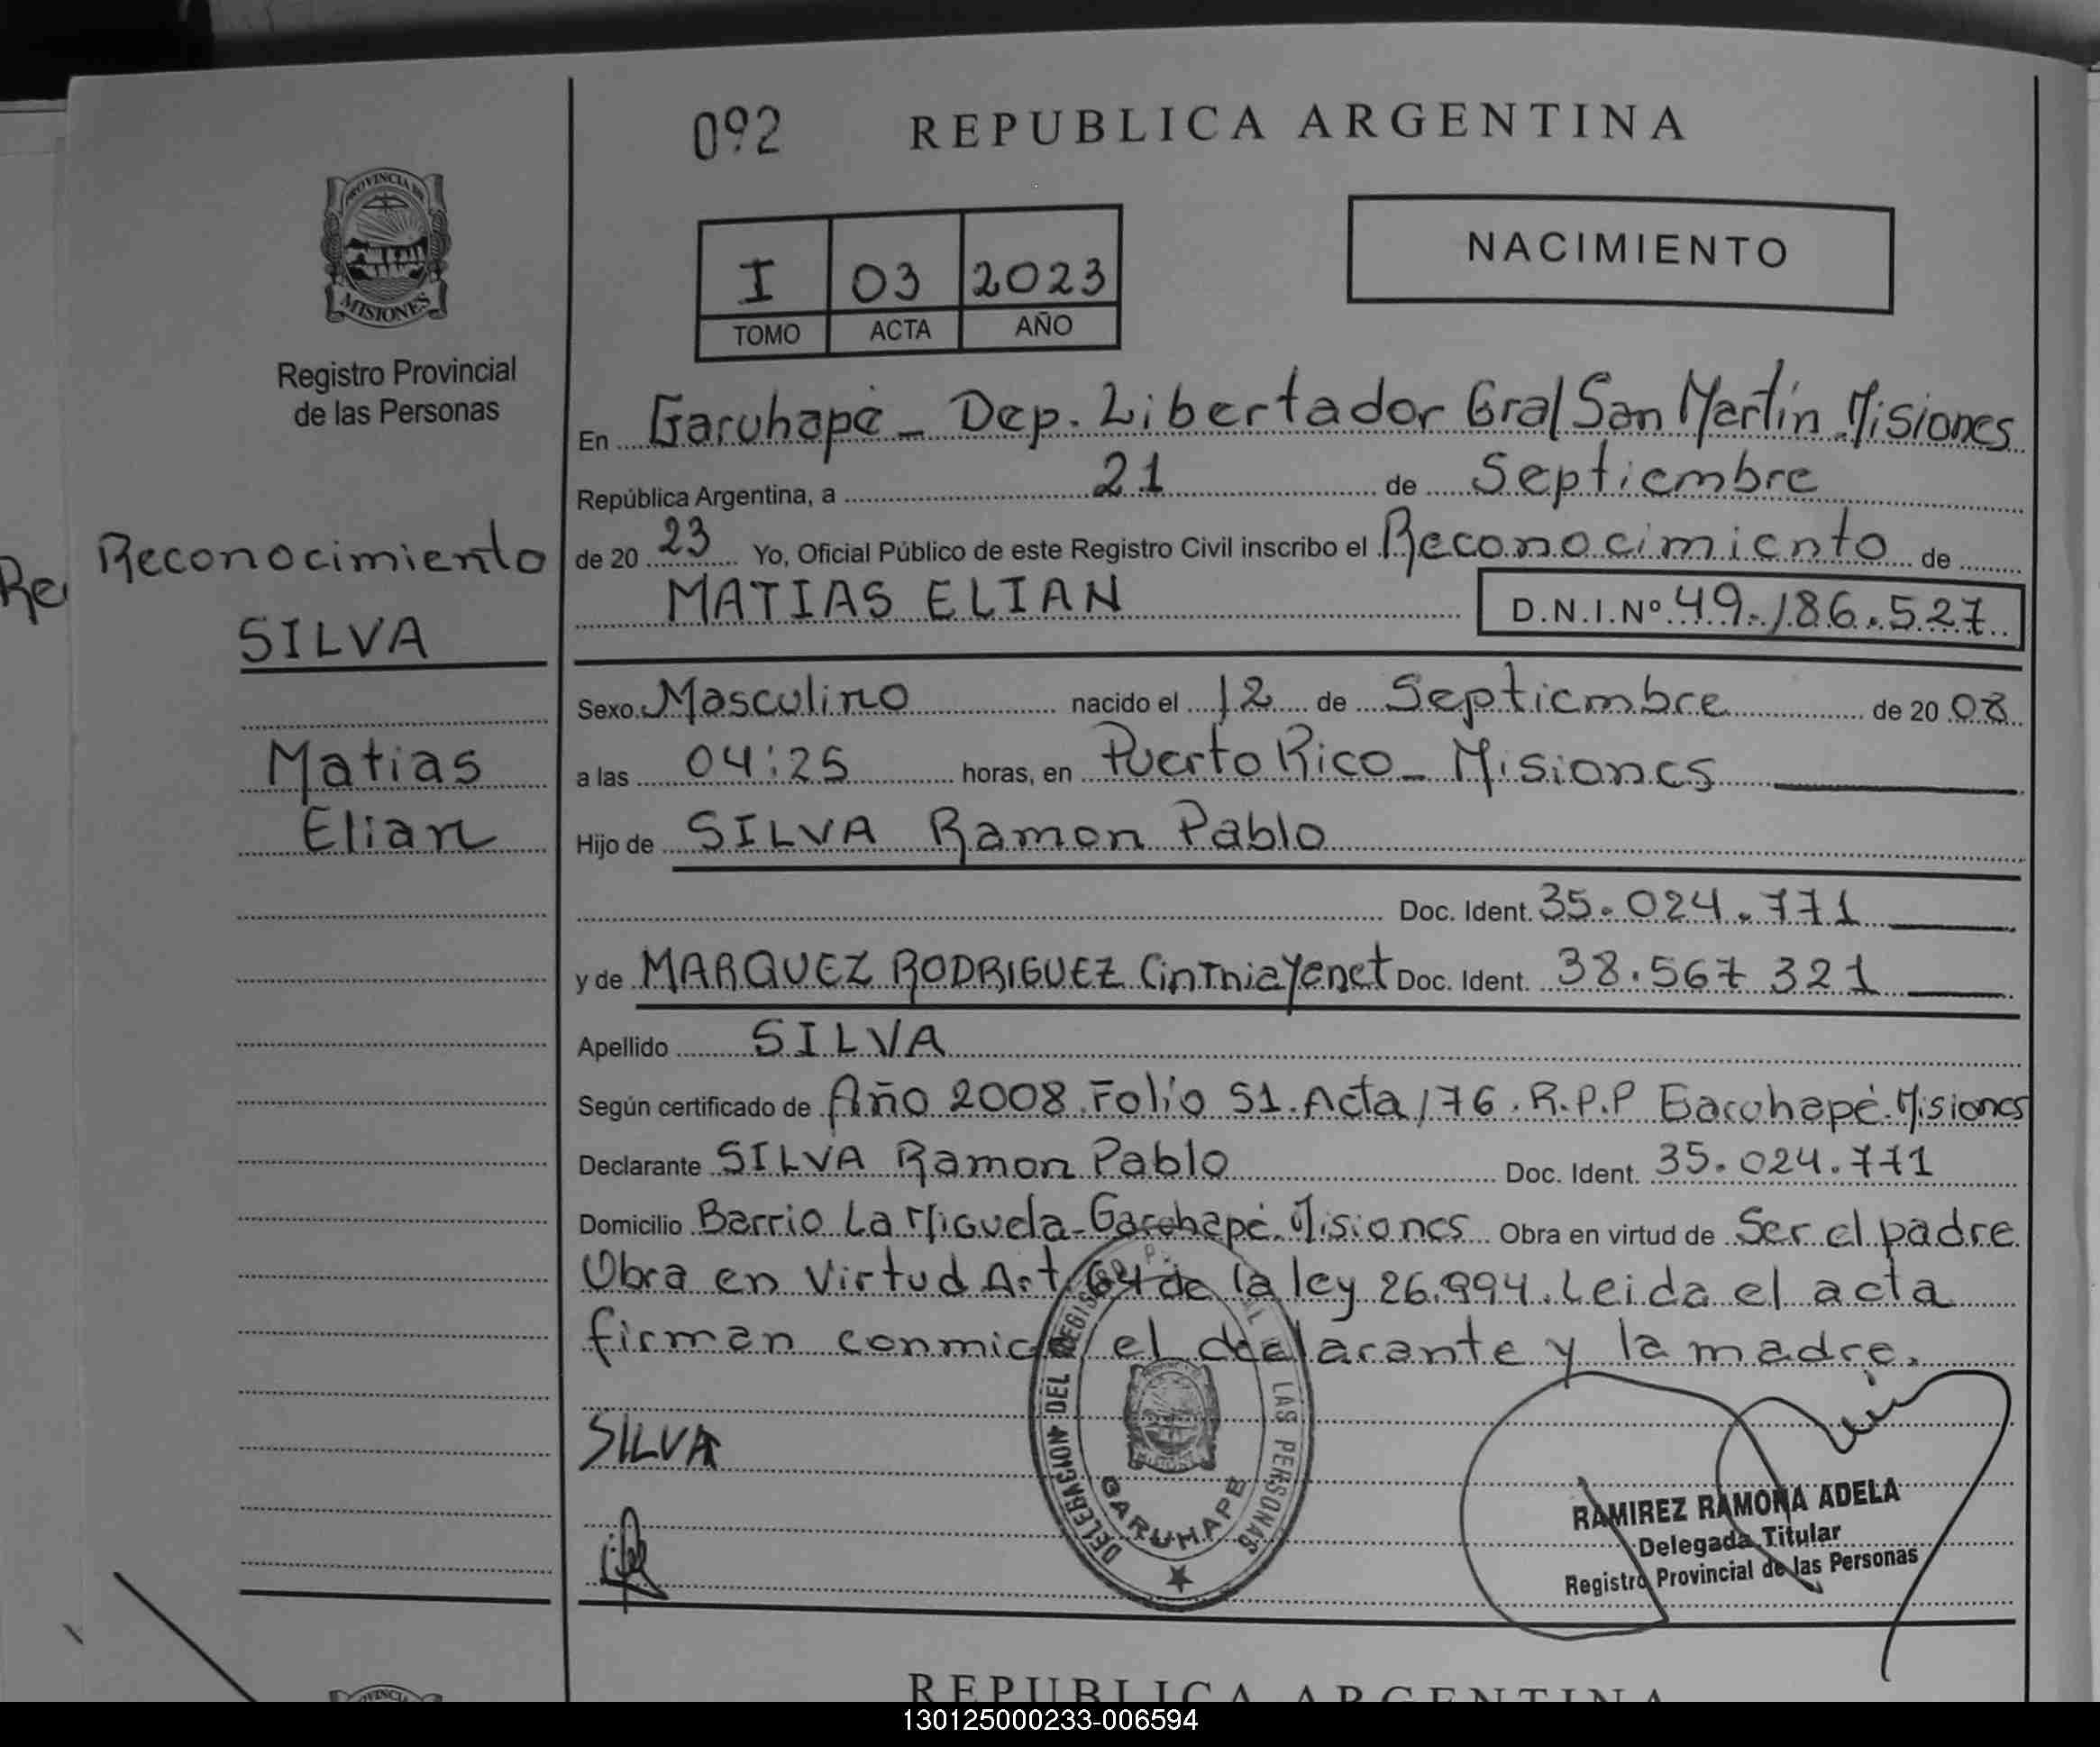 092 REPUBLICA ARGENTINA
PROVINCIA DE
MISIONES
Registro Provincial
de las Personas
I 03 2023
TOMO ACTA AÑO
NACIMIENTO
Reconocimiento
SILVA
Matias
Elian
En Garuhapé _ Dep. Libertador Gral San Martín Misiones
República Argentina, a 21 de Septiembre
de 20 23 Yo, Oficial Público de este Registro Civil inscribo el Reconocimiento de
MATIAS ELIAN D.N.I.Nº 49.186.527
Sexo Masculino nacido el 12 de Septiembre de 20 08
a las 04:25 horas, en Puerto Rico _ Misiones
Hijo de SILVA Ramon Pablo
Doc. Ident. 35.024.771
y de MARQUEZ RODRIGUEZ Cinthia Yenet Doc. Ident. 38.567 321
Apellido SILVA
Según certificado de Año 2008. Folio 51. Acta 176. R.P.P Garuhapé. Misiones
Declarante SILVA Ramon Pablo Doc. Ident. 35.024.771
Domicilio Barrio La Garuhapé. Misiones Obra en virtud de Ser el padre
Obra en Virtud Art 64 de la ley 26.994. Leida el acta
firman conmigo el declarante y la madre.
SILVA
DELEGACION DEL REGISTRO LAS PERSONAS
GARUHAPE
RAMIREZ RAMONA ADELA
Delegada Titular
Registro Provincial de las Personas
REPUBLICA ARGENTINA
130125000233-006594